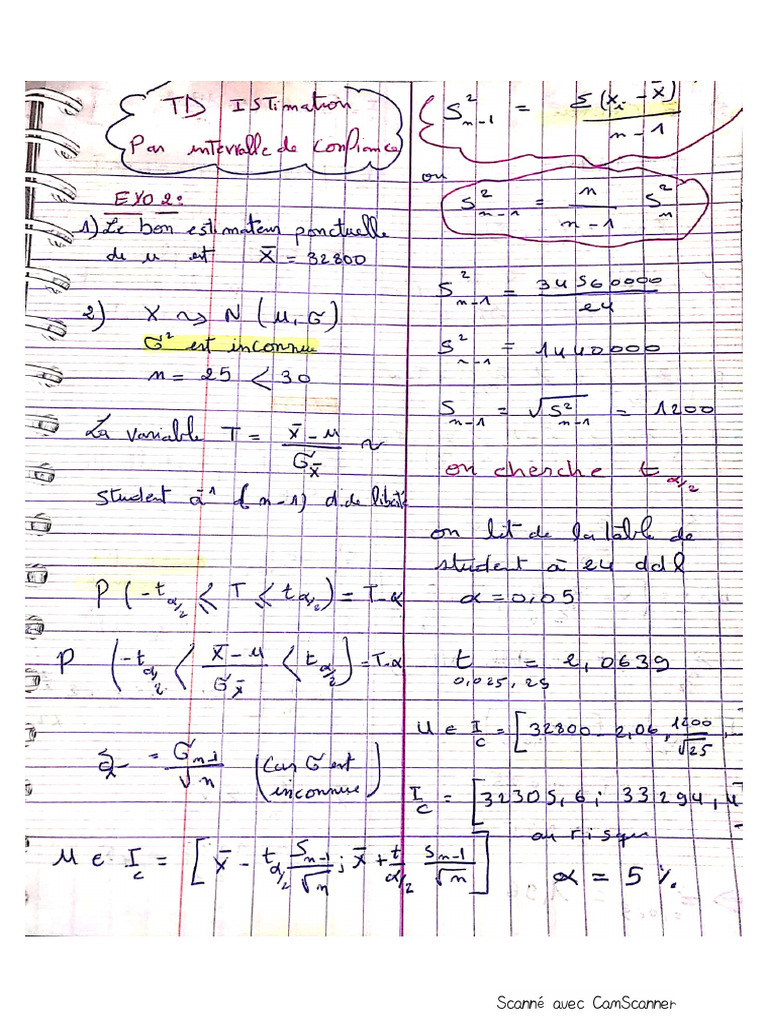 TD IStimation
Par intervalle de confiance
EXO 2:
1) Le bon estimateur ponctuelle
de μ est X̄ = 32800
2) X ⤳ N (μ, σ)
σ² est inconnue
n = 25 < 30
La variable T = (X̄ - μ) / σ_X̄ ~
student à (n-1) d.de liberté
P (-t_α/2 ≤ T ≤ t_α/2) = 1-α
P (-t_α/2 < (X̄ - μ) / σ_X̄ < t_α/2) = 1-α
= σ_n-1 / √n (cas σ est
inconnue)
μ ∈ I_c = [X̄ - t_α/2 S_n-1/√n ; X̄ + t_α/2 S_n-1/√n]
S²_n-1 = Σ(x_i - x̄) / n-1
ou
S²_n-1 = n / n-1 S²_n
S²_n-1 = 34560000 / 24
S²_n-1 = 1440000
S_n-1 = √S²_n-1 = 1200
on cherche t_α/2
on lit de la table de
student à 24 ddl
α = 0,05
t_0,025, 25 = 2,0639
μ ∈ I_c = [32800 - 2,06, 1200/√25
I_c = [32305,6 ; 33294,4
au risque
α = 5 %.
Scanné avec CamScanner